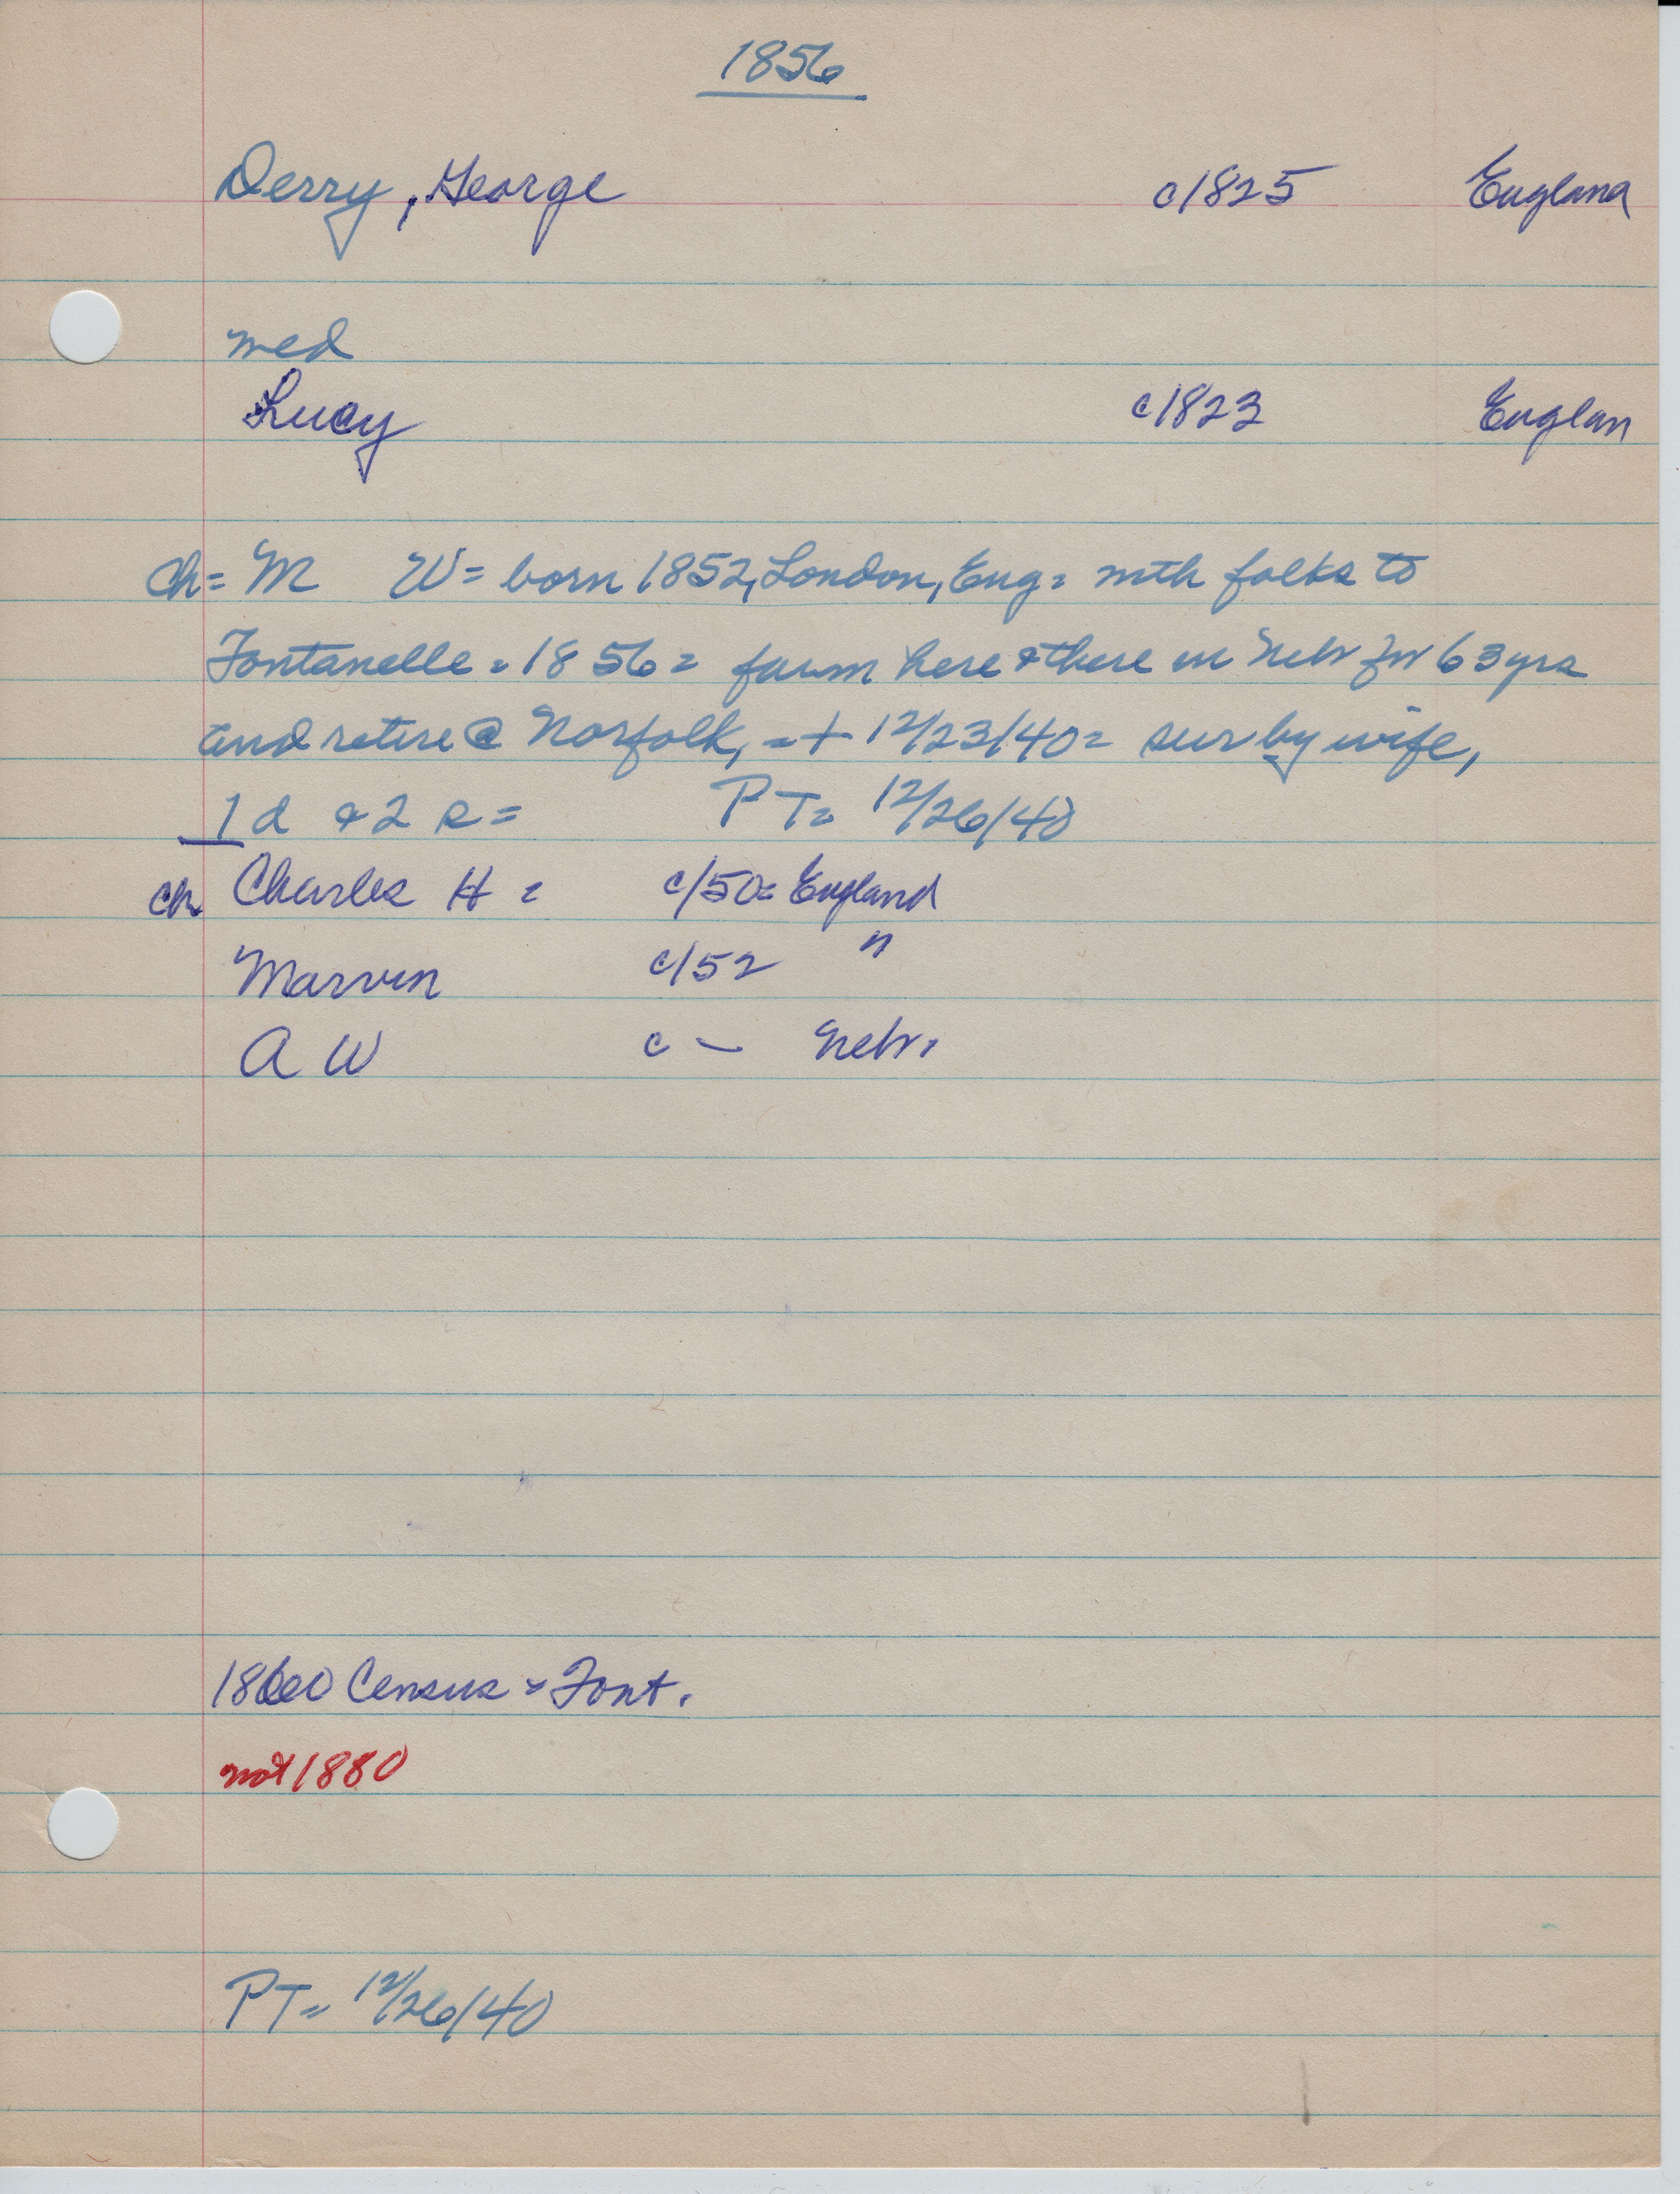 1856
Derry, George c1825 England
med
Lucy c1823 Englan
Ch= M W= born 1852, London, Eng= with folks to
Fontanelle = 1856= farm here & there in Nebr for 63 yrs
and retire @ Norfolk, =+ 12/23/40= sur by wife,
1 d & 2 s= PT= 12/26/40
ch Charles H = c/50= England
Marvin c/52 "
A W c – Nebr.
1860 Census = Font.
not 1880
PT= 12/26/40